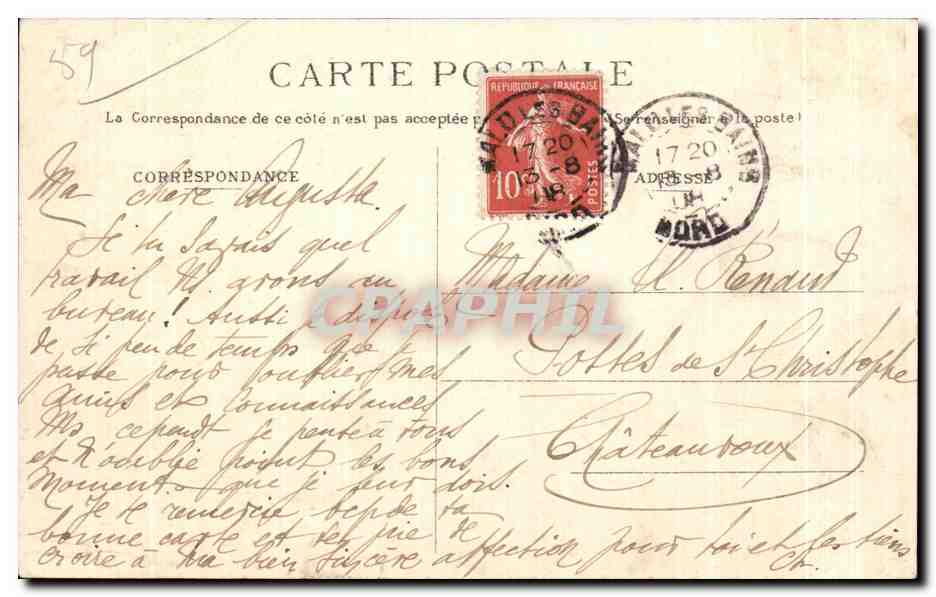 59
CARTE POSTALE
La Correspondance de ce côté n'est pas acceptée (Se renseigner à la poste)
REPUBLIQUE FRANÇAISE
10 POSTES
MALO LES BAINS
17 20
13 - 8
08
NORD
MALO LES BAINS
17 20
13 - 8
08
NORD
CORRESPONDANCE
ADRESSE
Ma chère Augusta
Si tu savais quel
travail ns. avons au
bureau! Aussi je dispose
de si peu de temps que je
passe pour oublier mes
amis et connaissances
Ms cependt je pense à vous
et n'oublie point les bons
moments que je leur dois.
Je te remercie de ta
bonne carte et te prie de
croire à ma bien sincère affection pour toi et les tiens
Madame A. Renaud
Postes de St Christophe
Châteauroux
CPAPHIL